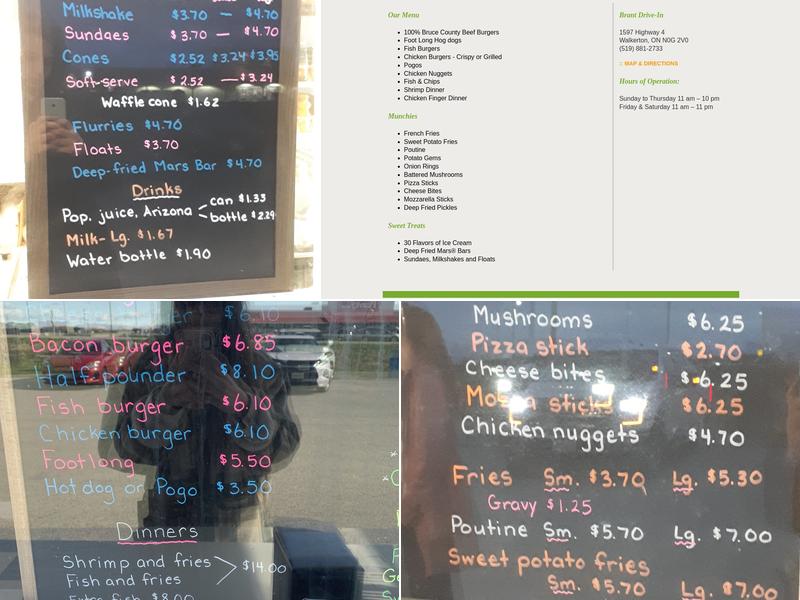 Milkshake $3.70 — $4.70
Sundaes $3.70 — $4.70
Cones $2.52 $3.24 $3.95
Soft-serve $2.52 — $3.24
Waffle cone $1.62
Flurries $4.70
Floats $3.70
Deep-fried Mars Bar $4.70
Drinks
Pop, juice, Arizona < can $1.33
bottle $2.29
Milk- Lg. $1.67
Water bottle $1.90
Our Menu
100% Bruce County Beef Burgers
Foot Long Hog dogs
Fish Burgers
Chicken Burgers - Crispy or Grilled
Pogos
Chicken Nuggets
Fish & Chips
Shrimp Dinner
Chicken Finger Dinner
Munchies
French Fries
Sweet Potato Fries
Poutine
Potato Gems
Onion Rings
Battered Mushrooms
Pizza Sticks
Cheese Bites
Mozzarella Sticks
Deep Fried Pickles
Sweet Treats
30 Flavors of Ice Cream
Deep Fried Mars® Bars
Sundaes, Milkshakes and Floats
Brant Drive-In
1597 Highway 4
Walkerton, ON N0G 2V0
(519) 881-2733
:: MAP & DIRECTIONS
Hours of Operation:
Sunday to Thursday 11 am – 10 pm
Friday & Saturday 11 am – 11 pm
$6.10
Bacon burger $6.85
Half-pounder $8.10
Fish burger $6.10
Chicken burger $6.10
Footlong $5.50
Hot dog or Pogo $3.50
Dinners
Shrimp and fries > $14.00
Fish and fries
Extra fish $8.00
Mushrooms $6.25
Pizza stick $2.70
Cheese bites $6.25
sticks $6.25
Chicken nuggets $4.70
Fries Sm. $3.70 Lg. $5.30
Gravy $1.25
Poutine Sm. $5.70 Lg. $7.00
Sweet potato fries
Sm. $5.70 Lg. $7.00